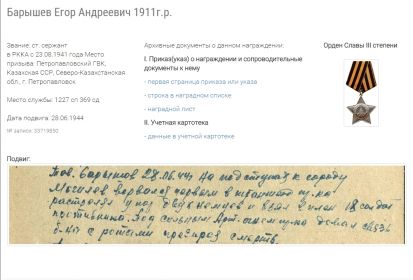 Барышев Егор Андреевич 1911г.р.
Звание: ст. сержант
в РККА с 23.08.1941 года Место
призыва: Петропавловский ГВК,
Казахская ССР, Северо-Казахстанская
обл., г. Петропавловск
Место службы: 1227 сп 369 сд
Дата подвига: 28.06.1944
№ записи: 33719850
Архивные документы о данном награждении:
I. Приказ(указ) о награждении и сопроводительные
документы к нему
- первая страница приказа или указа
- строка в наградном списке
- наградной лист
II. Учетная картотека
- данные в учетной картотеке
Орден Славы III степени
Подвиг:
Тов. Барышев 28.06.44г на подступах к городу
Могилев ворвался первым в траншею пр-ка
растрелял двух немцев и взял в плен 18 солдат
противника. Под сильным Арт. огнем пр-ка давал связь
б-на с ротами презирая смерть.